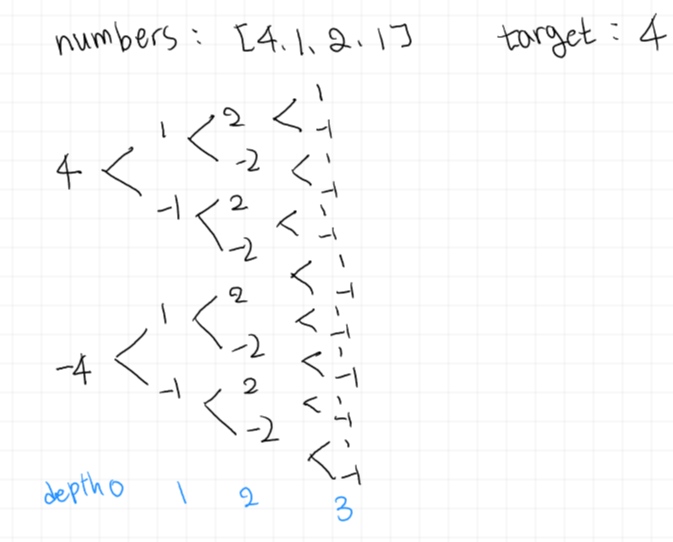 numbers : [4, 1, 2, 1] target : 4
1
2 < -1
1 < -2 < 1
4 < -1
-1 < 2 < 1
-2 -1
< 1
-1
2 < 1
1 < -2 -1
-4 < < 1
-1 < 2 -1
-2 < 1
-1
< 1
-1
depth 0 1 2 3